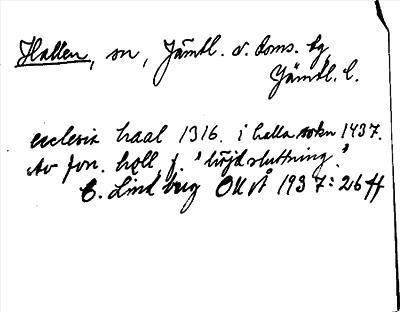 Hallen, sn, Jämtl. v. doms. tg,
Jämtl. l.
ecclesia haal 1316. i halla sokn 1437.
Av fvn. hǫll, f. "höjdsluttning."
E. Lindberg OUÅ 1937: 26 ff